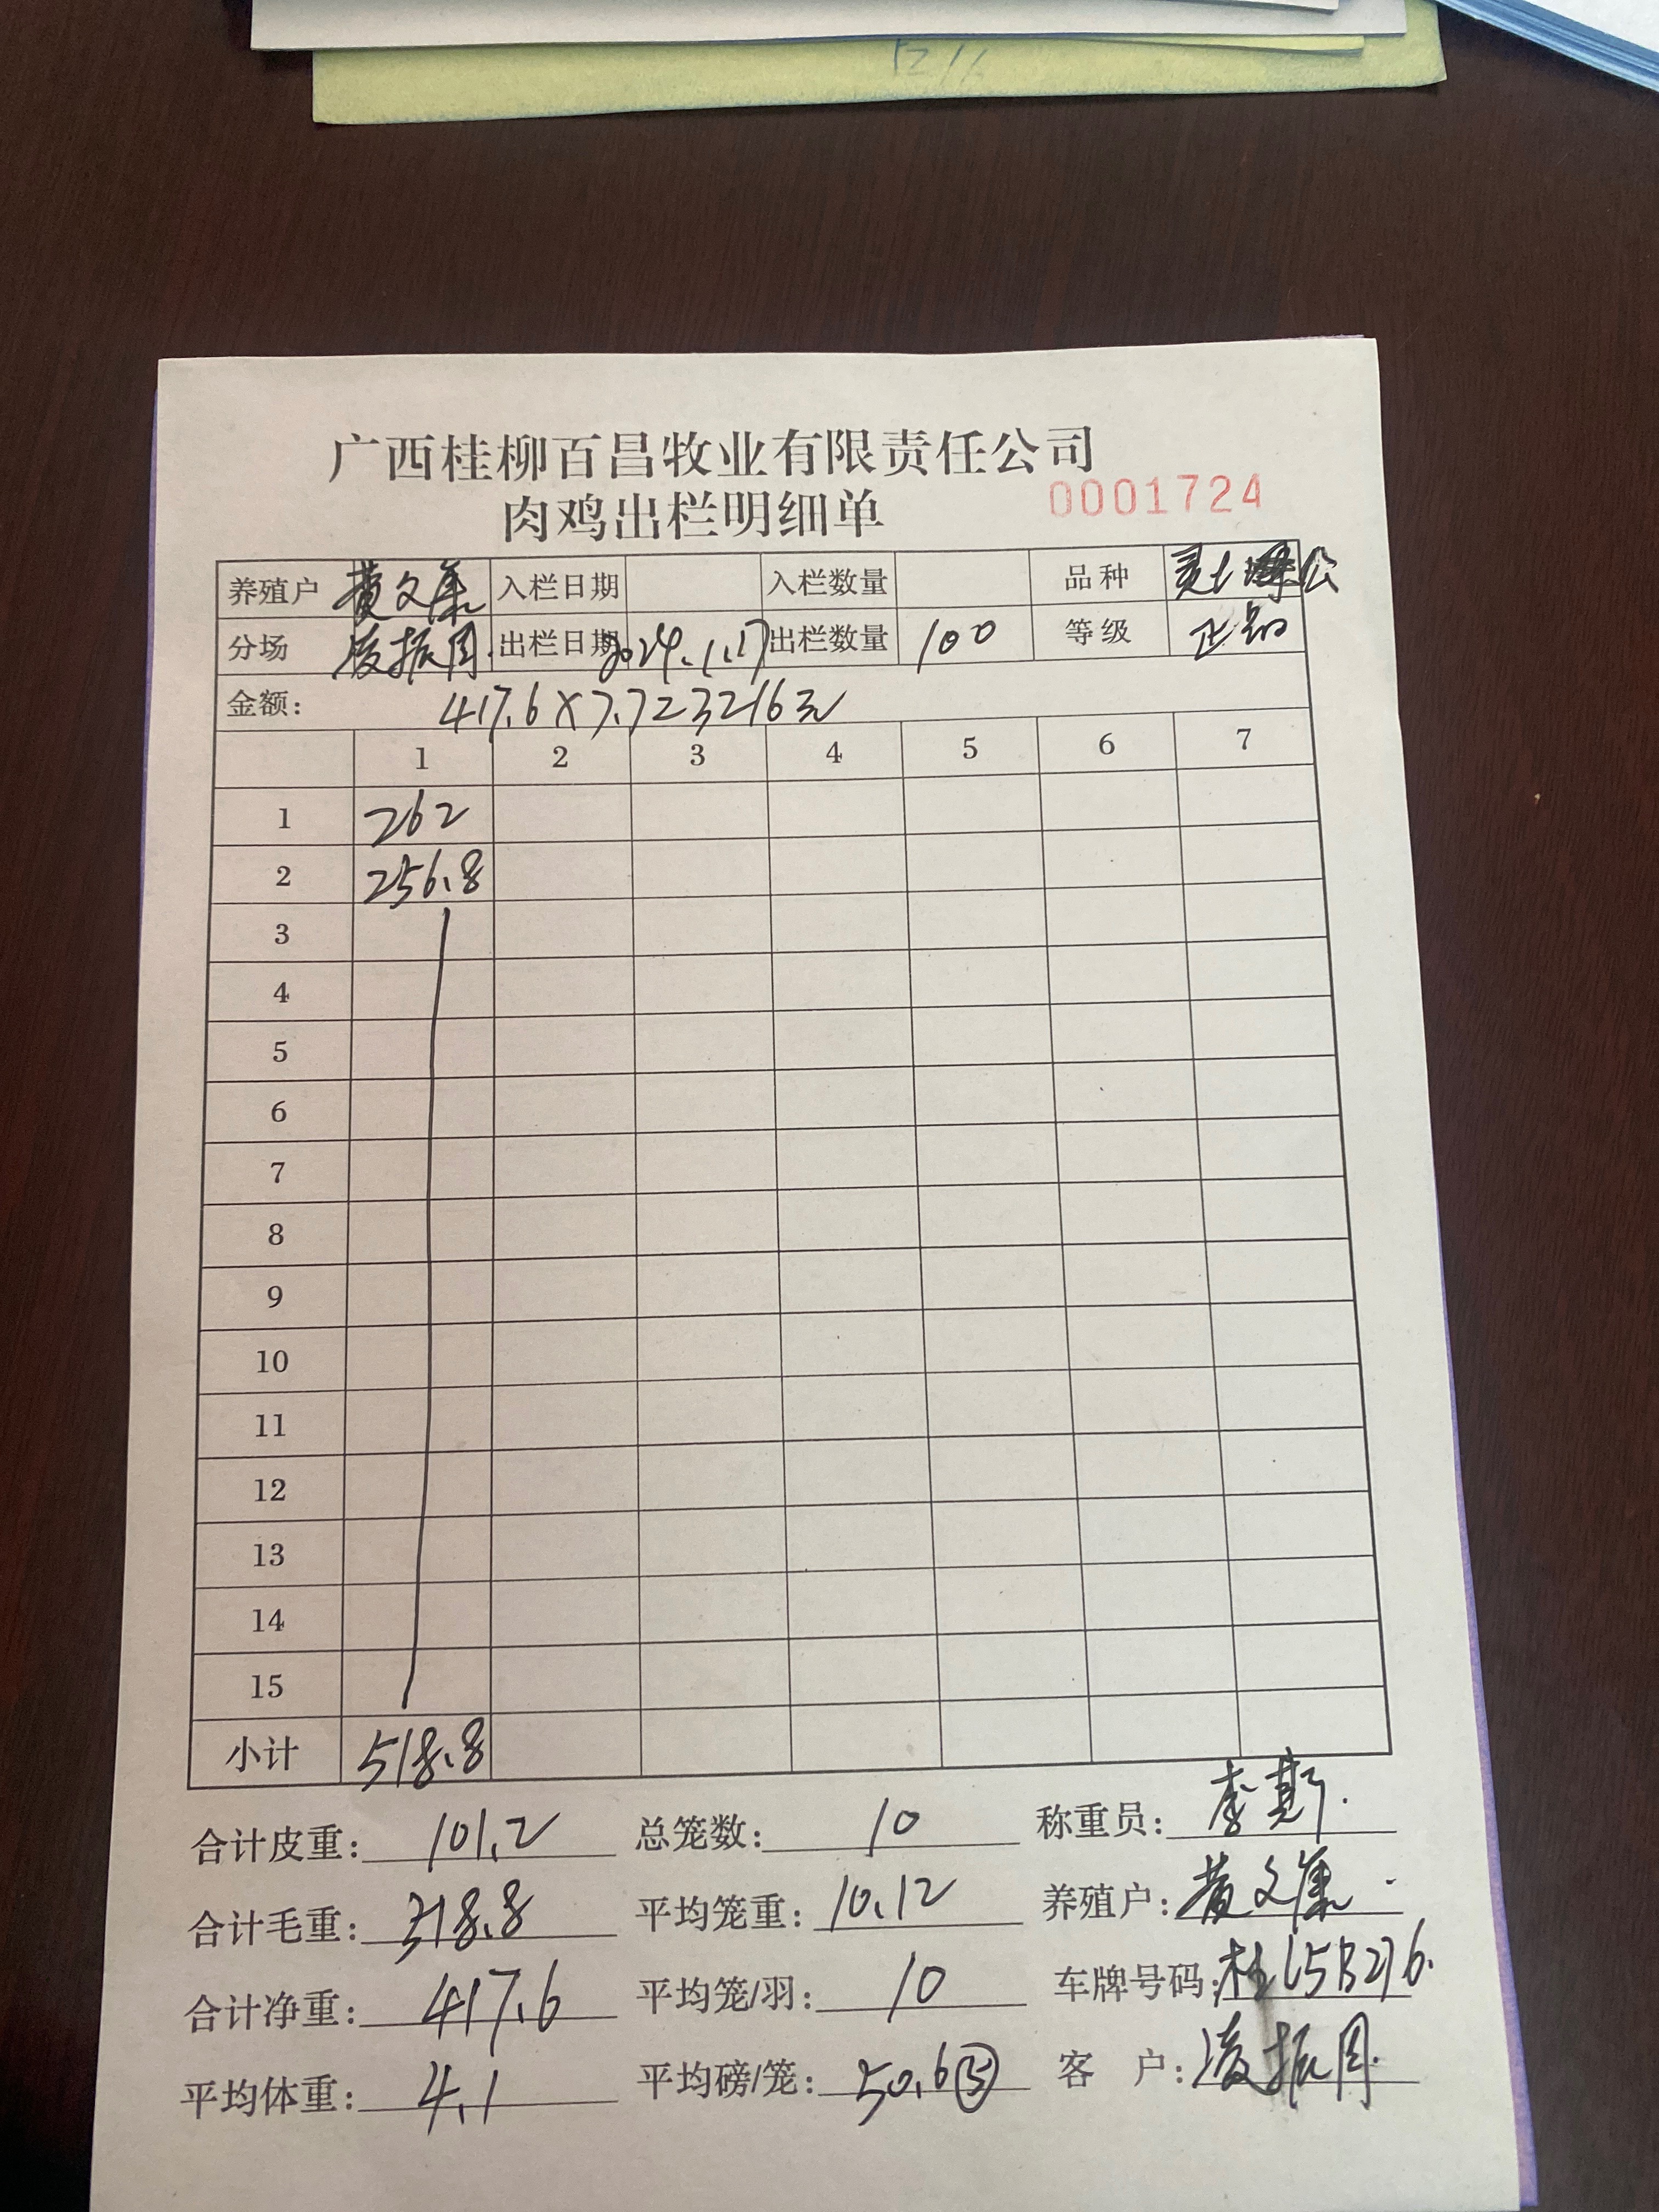 广西桂柳百昌牧业有限责任公司
肉鸡出栏明细单 0001724
养殖户 黄文集 入栏日期 入栏数量 品种
分场 凌振国 出栏日期 2024.1.17 出栏数量 100 等级
金额: 417.6×7.7 23216元
1 2 3 4 5 6 7
1 262
2 256.8
3
4
5
6
7
8
9
10
11
12
13
14
15
小计 518.8
合计皮重: 101.2 总笼数: 10 称重员: 李期.
合计毛重: 318.8 平均笼重: 10.12 养殖户: 黄文集.
合计净重: 417.6 平均笼/羽: 10 车牌号码: 桂L5B276.
平均体重: 4.1 平均磅/笼: 50.6⑤ 客 户: 凌振国.